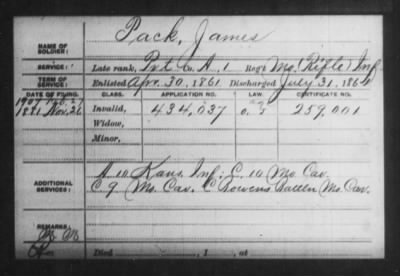 Pack, James
NAME OF SOLDIER:
SERVICE: Late rank, Pvt Co. A, 1 Reg't Mo. (Rifle) Inf
TERM OF SERVICE: Enlisted Apr. 30, 1861 Discharged July 31, 186
DATE OF FILING. CLASS. APPLICATION NO. LAW. CERTIFICATE NO.
1907
1881 Nov. 26 Invalid, 434,037 259,001
Widow,
Minor,
ADDITIONAL SERVICES: A 10 Kans. Inf; C. 10 Mo. Cav.
C 9 Mo. Cav. C Bowens Batt'n Mo. Cav.
REMARKS:
Died , 1 , at